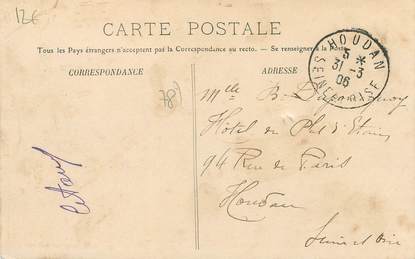 12€
CARTE POSTALE
Tous les Pays étrangers n'acceptent pas la Correspondance au recto. — Se renseigner à la Poste
CORRESPONDANCE
ADRESSE
HOUDAN
5 *
31 -3
06
SEINE-ET-OISE
78
Mlle B.
Hôtel du Plat d'Etain
94 Rue de Paris
Houdan
Seine et Oise